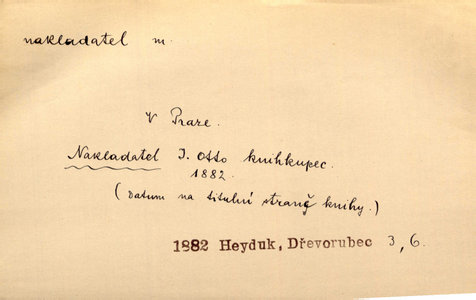 nakladatel m.
V Praze.
Nakladatel J. Otto knihkupec.
1882.
(Datum na titulní straně knihy.)
1882 Heyduk, Dřevorubec 3,6.